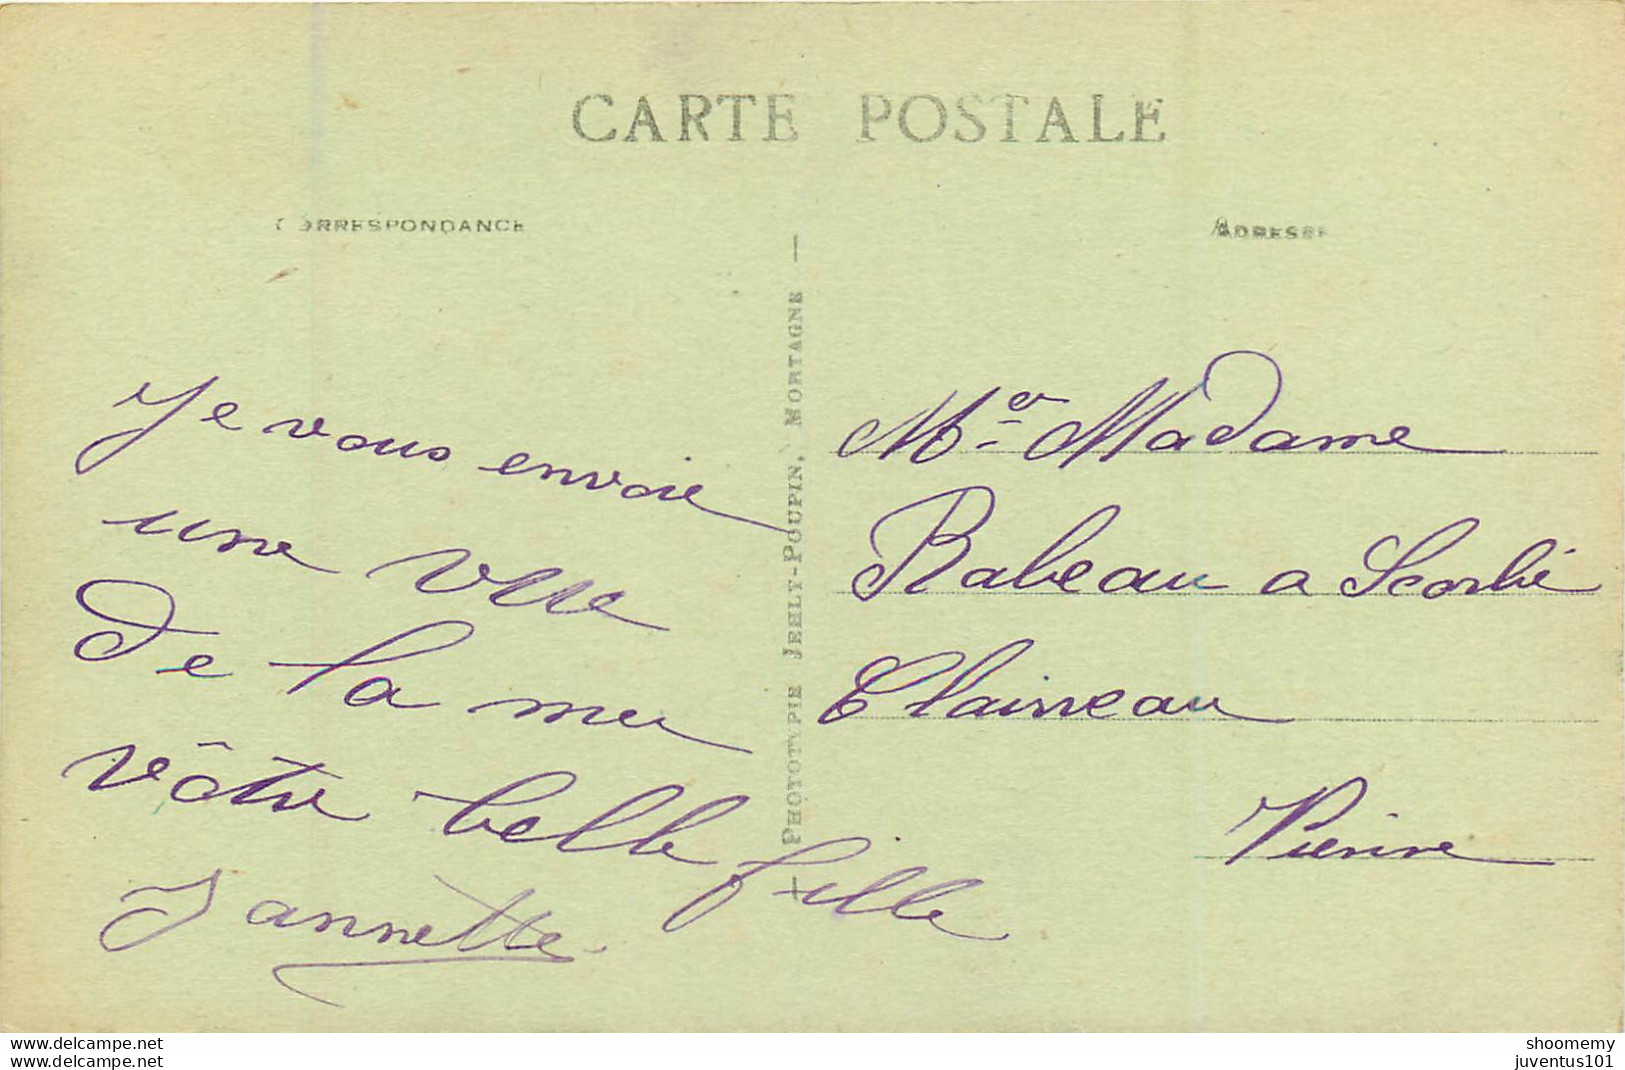 CARTE POSTALE
CORRESPONDANCE
ADRESSE
Je vous envoie
une vue
de la mer
vôtre belle fille
Jannette
— PHOTOTYPIE JEHLY-POUPIN, MORTAGNE —
Mr Madame
Rabeau a Scorbé
Clairveau
Vienne
www.delcampe.net
www.delcampe.net
shoomemy
juventus101